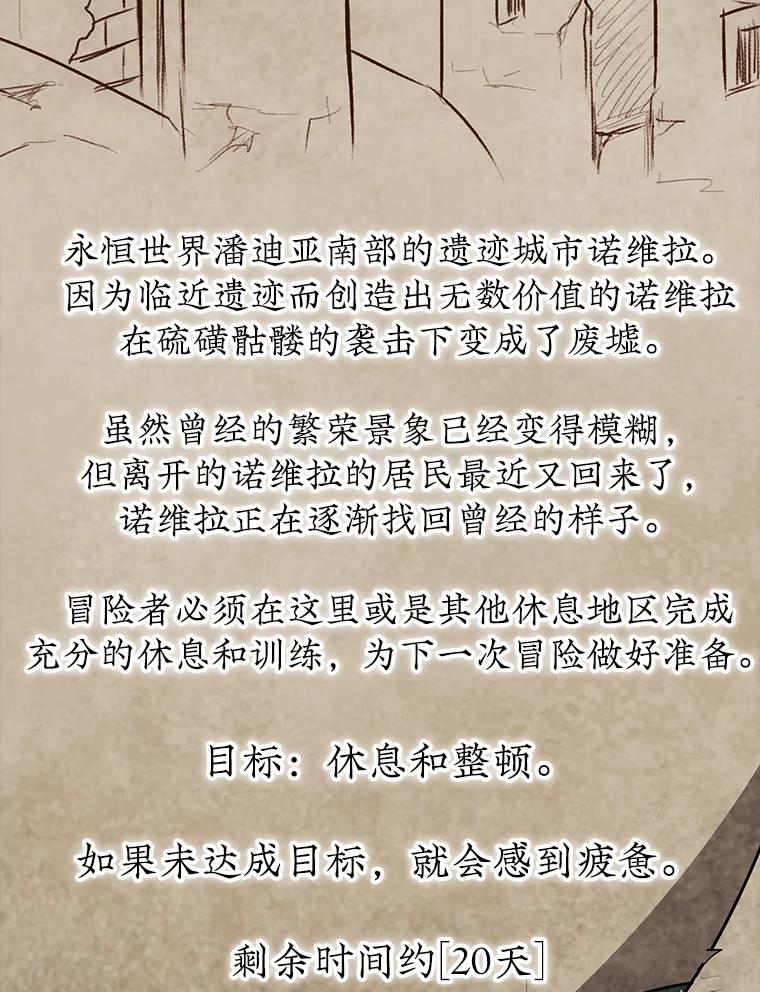 永恒世界潘迪亚南部的遗迹城市诺维拉。
因为临近遗迹而创造出无数价值的诺维拉
在硫磺骷髅的袭击下变成了废墟。
虽然曾经的繁荣景象已经变得模糊，
但离开的诺维拉的居民最近又回来了，
诺维拉正在逐渐找回曾经的样子。
冒险者必须在这里或是其他休息地区完成
充分的休息和训练，为下一次冒险做好准备。
目标：休息和整顿。
如果未达成目标，就会感到疲惫。
剩余时间约[20天]